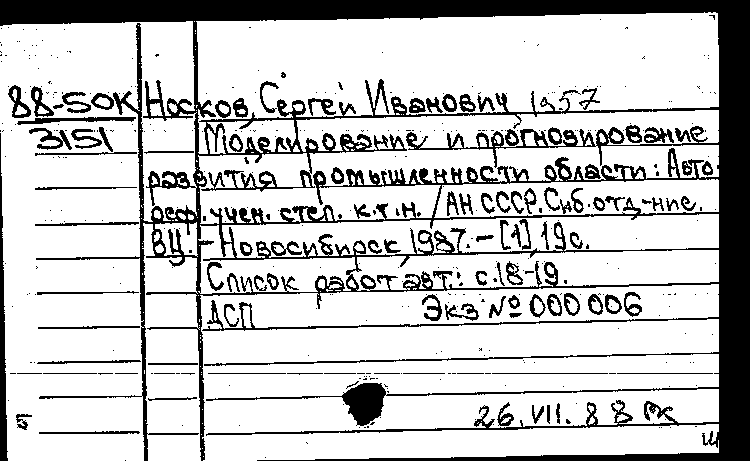 88-50К Носков, Сергей Иванович 1957
3151 Моделирование и прогнозирование
развития промышленности области: Авто-
реф. учен. степ. к.т.н. / АН СССР. Сиб. отд-ние.
ВЦ. - Новосибирск, 1987. - [1], 19 с.
Список работ авт.: с. 18-19.
ДСП Экз № 000006
26. VII. 88